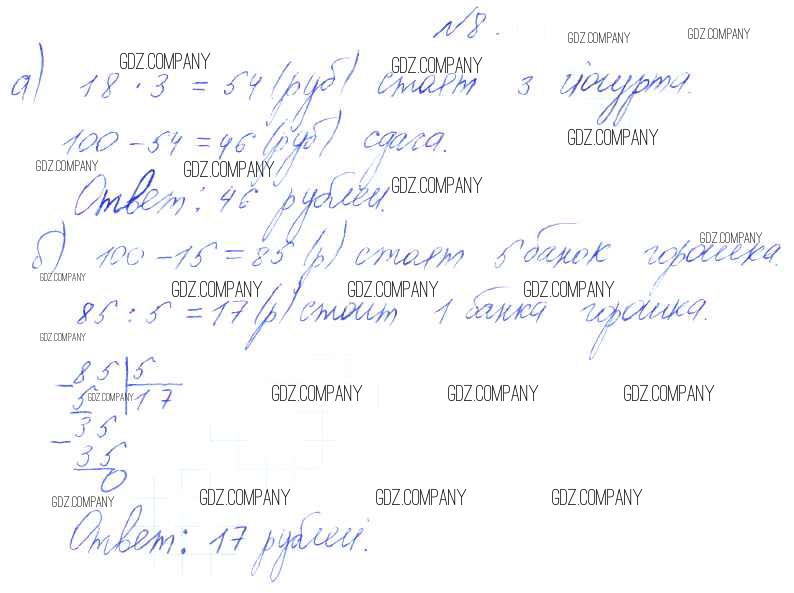 №8.
а) 18 · 3 = 54 (руб) стоят 3 йогурта.
100 - 54 = 46 (руб) сдача.
Ответ: 46 рублей.
б) 100 - 15 = 85 (р) стоят 5 банок горошка.
85 : 5 = 17 (р) стоит 1 банка горошка.
- 85 | 5
5 | 17
- 35
35
0
Ответ: 17 рублей.
GDZ.COMPANY GDZ.COMPANY
GDZ.COMPANY GDZ.COMPANY
GDZ.COMPANY
GDZ.COMPANY GDZ.COMPANY GDZ.COMPANY
GDZ.COMPANY
GDZ.COMPANY GDZ.COMPANY GDZ.COMPANY GDZ.COMPANY
GDZ.COMPANY
GDZ.COMPANY GDZ.COMPANY GDZ.COMPANY GDZ.COMPANY
GDZ.COMPANY GDZ.COMPANY GDZ.COMPANY GDZ.COMPANY